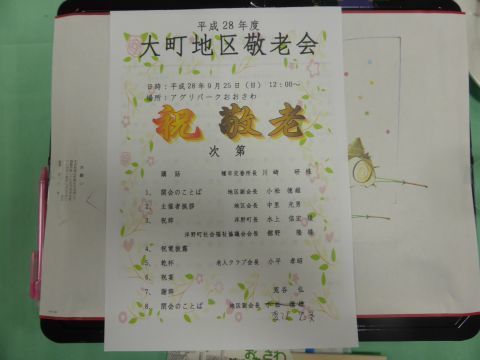 平成28年度
大町地区敬老会
日時：平成28年9月25日（日） 12：00～
場所：アグリパークおおさわ
祝 敬老
次 第
講話 種市交番所長 川崎 研 様
1. 開会のことば 地区副会長 小松
2. 主催者挨拶 地区会長 中里 光男
3. 祝辞 洋野町長 水上 信宏 様
洋野町社会福祉協議会会長 舘野 隆 様
4. 祝電披露
5. 乾杯 老人クラブ会長 小平 孝昭
6. 祝宴
7. 謝辞 荒谷 弘
8. 閉会のことば 地区副会長